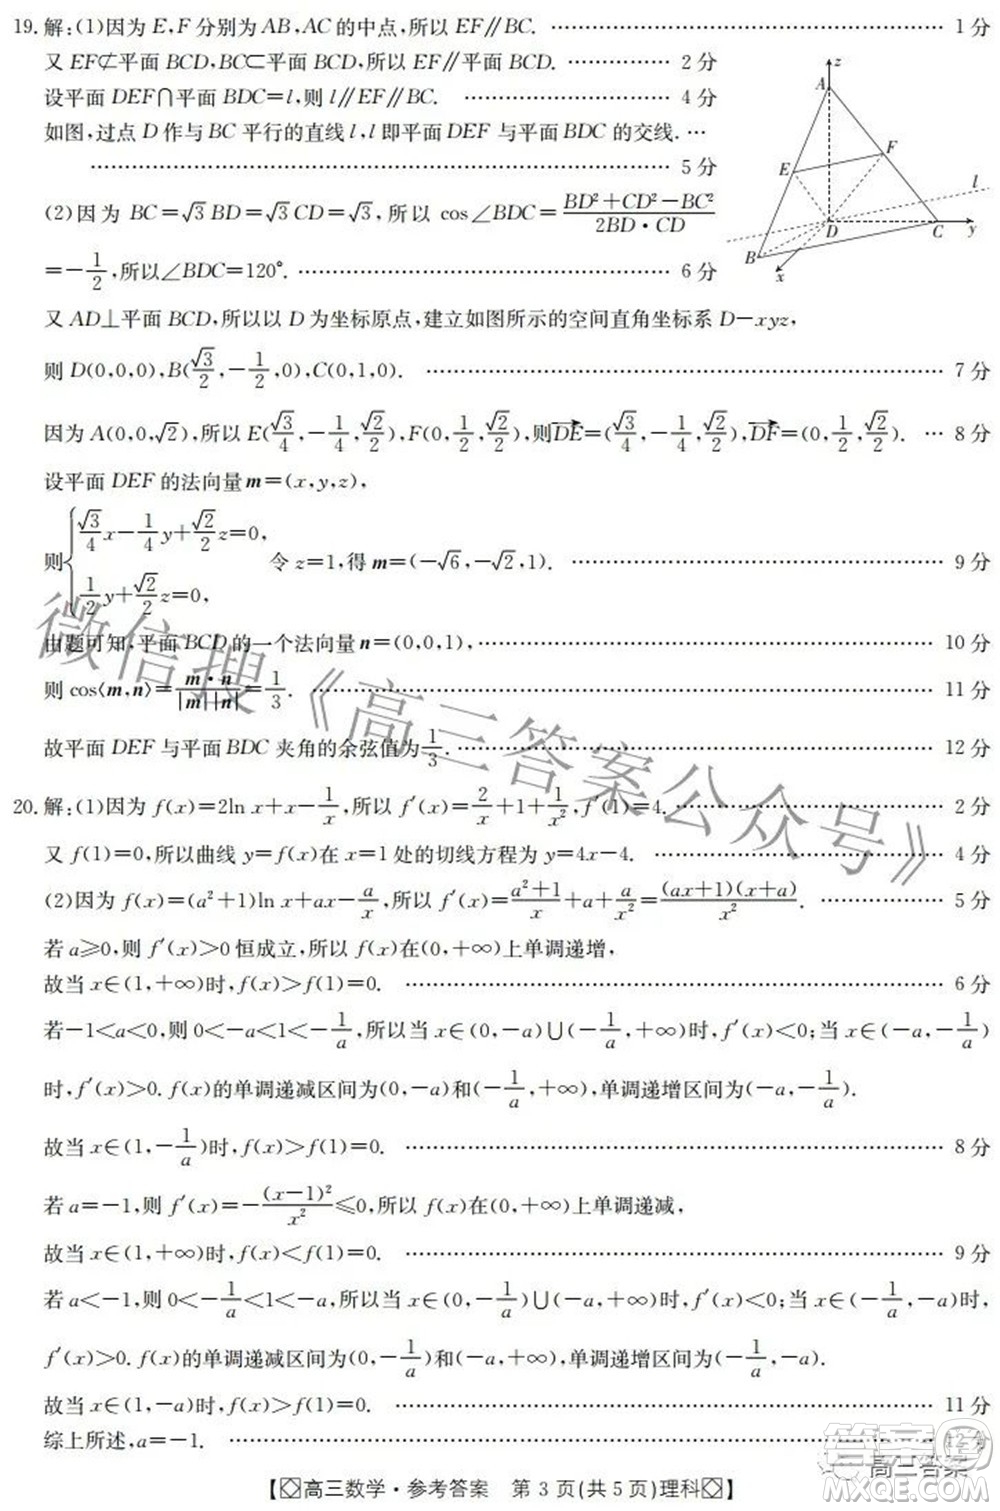 19. 解:(1)因为 E,F 分别为 AB,AC 的中点,所以 EF∥BC. …… 1 分
又 EF⊄平面 BCD,BC⊂平面 BCD,所以 EF∥平面 BCD. …… 2 分
设平面 DEF∩平面 BDC=l,则 l∥EF∥BC. …… 4 分
如图,过点 D 作与 BC 平行的直线 l,l 即平面 DEF 与平面 BDC 的交线. …
…… 5 分
z
A
E
F
l
D
C
y
B
x
(2)因为 BC=√3BD=√3CD=√3,所以 cos∠BDC=(BD²+CD²-BC²)/(2BD·CD)
=-1/2,所以∠BDC=120°. …… 6 分
又 AD⊥平面 BCD,所以以 D 为坐标原点,建立如图所示的空间直角坐标系 D-xyz,
则 D(0,0,0),B(√3/2,-1/2,0),C(0,1,0). …… 7 分
因为 A(0,0,√2),所以 E(√3/4,-1/4,√2/2),F(0,1/2,√2/2),则DE→=(√3/4,-1/4,√2/2),DF→=(0,1/2,√2/2). … 8 分
设平面 DEF 的法向量 m=(x,y,z),
则{√3/4x-1/4y+√2/2z=0, 1/2y+√2/2z=0, 令 z=1,得 m=(-√6,-√2,1). …… 9 分
由题可知,平面 BCD 的一个法向量 n=(0,0,1), …… 10 分
则 cos⟨m,n⟩=m·n/|m||n|=1/3. …… 11 分
故平面 DEF 与平面 BDC 夹角的余弦值为1/3. …… 12 分
20. 解:(1)因为 f(x)=2ln x+x-1/x,所以 f′(x)=2/x+1+1/x²,f′(1)=4. …… 2 分
又 f(1)=0,所以曲线 y=f(x)在 x=1 处的切线方程为 y=4x-4. …… 4 分
(2)因为 f(x)=(a²+1)ln x+ax-a/x,所以 f′(x)=(a²+1)/x+a+a/x²=(ax+1)(x+a)/x². …… 5 分
若 a≥0,则 f′(x)>0 恒成立,所以 f(x)在(0,+∞)上单调递增,
故当 x∈(1,+∞)时,f(x)>f(1)=0. …… 6 分
若-1<a<0,则 0<-a<1<-1/a,所以当 x∈(0,-a)∪(-1/a,+∞)时,f′(x)<0;当 x∈(-a,-1/a)
时,f′(x)>0. f(x)的单调递减区间为(0,-a)和(-1/a,+∞),单调递增区间为(-a,-1/a).
故当 x∈(1,-1/a)时,f(x)>f(1)=0. …… 8 分
若 a=-1,则 f′(x)=-(x-1)²/x²≤0,所以 f(x)在(0,+∞)上单调递减,
故当 x∈(1,+∞)时,f(x)<f(1)=0. …… 9 分
若 a<-1,则 0<-1/a<1<-a,所以当 x∈(0,-1/a)∪(-a,+∞)时,f′(x)<0;当 x∈(-1/a,-a)时,
f′(x)>0. f(x)的单调递减区间为(0,-1/a)和(-a,+∞),单调递增区间为(-1/a,-a).
故当 x∈(1,-a)时,f(x)>f(1)=0. …… 11 分
综上所述,a=-1. …… 12 分
【高三数学·参考答案 第 3 页(共 5 页)理科】
微信搜《高三答案公众号》
高三答案